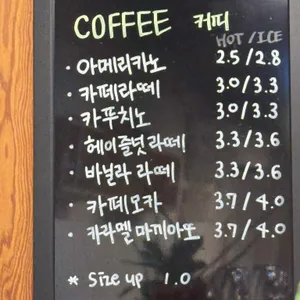 COFFEE 커피
HOT / ICE
· 아메리카노 2.5 / 2.8
· 카페라떼 3.0 / 3.3
· 카푸치노 3.0 / 3.3
· 헤이즐넛 라떼 3.3 / 3.6
· 바닐라 라떼 3.3 / 3.6
· 카페모카 3.7 / 4.0
· 카라멜 마끼아또 3.7 / 4.0
* Size up 1.0